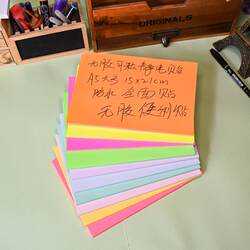 ORIGINALS
无胶可粘静电贴
A5大小 15×21cm
防水 全面贴
无胶便利贴